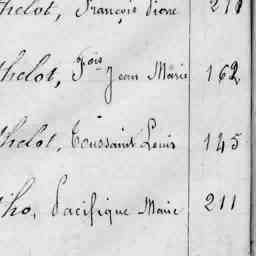 thelot, François Pierre 271
thelot, Fois Jean Marie 162
thelot, Toussaint Louis 145
tho, Pacifique Marie 211